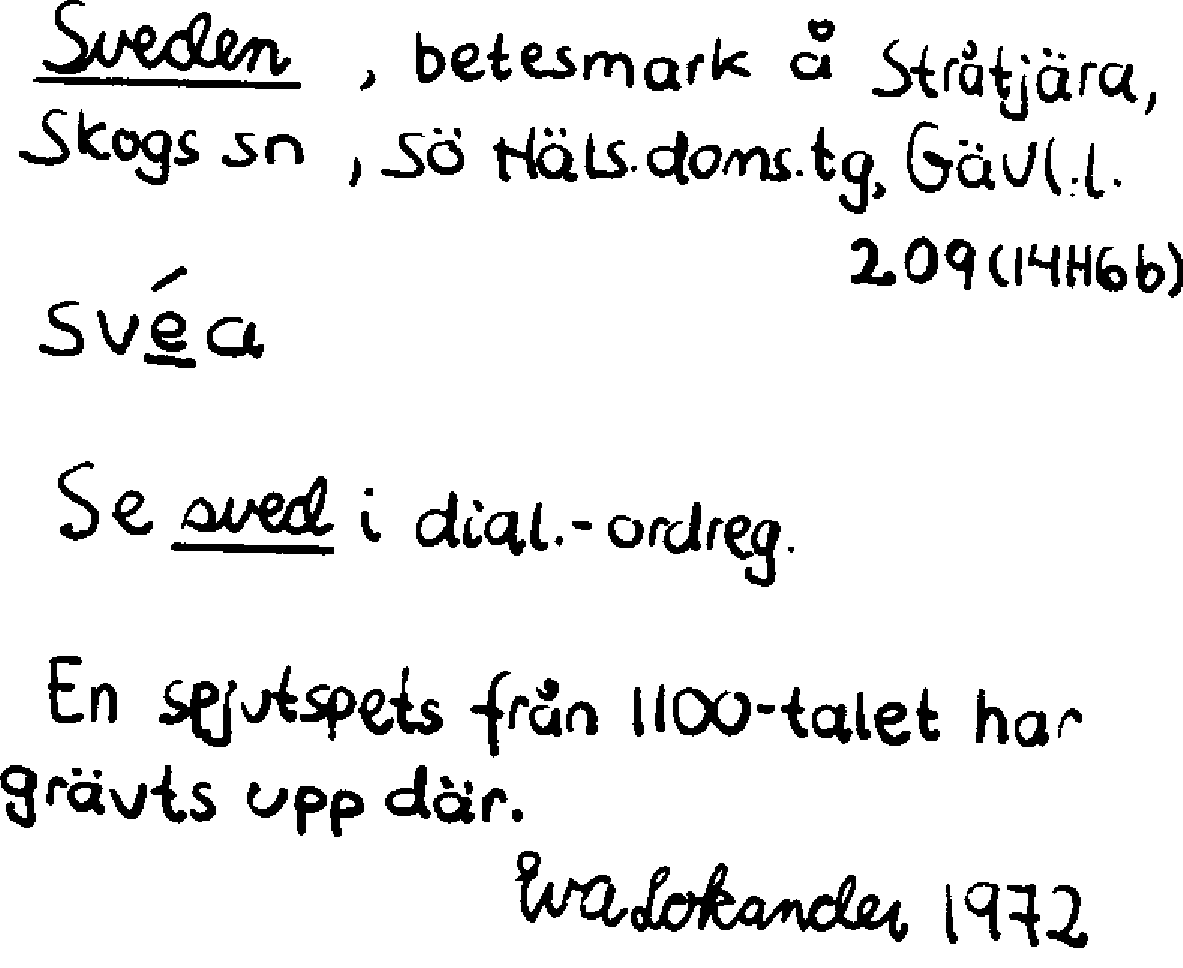 Sveden, betesmark å Stråtjära,
Skogs sn, Sö Häls. doms. tg, Gävl. l.
209 (14H6b)
svéa
Se sved i dial.-ordreg.
En spjutspets från 1100-talet har
grävts upp där.
Eva Lokander 1972